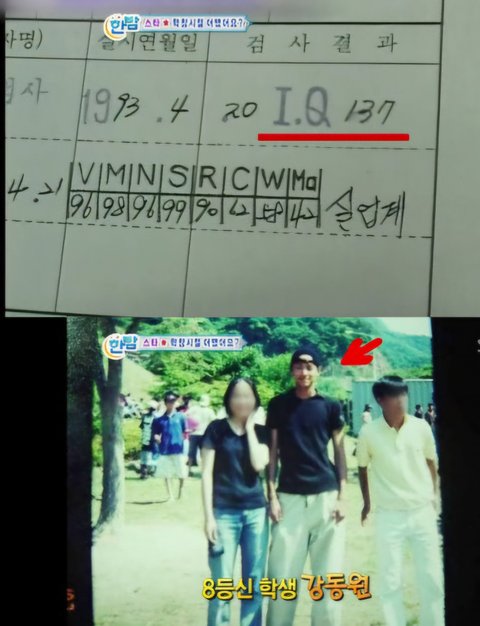 한밤 스타★학창시절 어땠어요?
자명) 실시연월일 검사결과
검사 1993.4.20 I.Q 137
4.21 V M N S R C W Ma
96 98 96 99 90 62 58 42 실업계
한밤 스타★학창시절 어땠어요?
8등신 학생 강동원